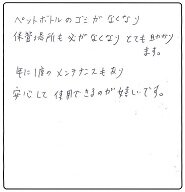 ペットボトルのゴミがなくなり
保管場所も必がなくなりとても助かり
ます。
年に1度のメンテナンスも有り
安心して使用できるのが嬉しいです。